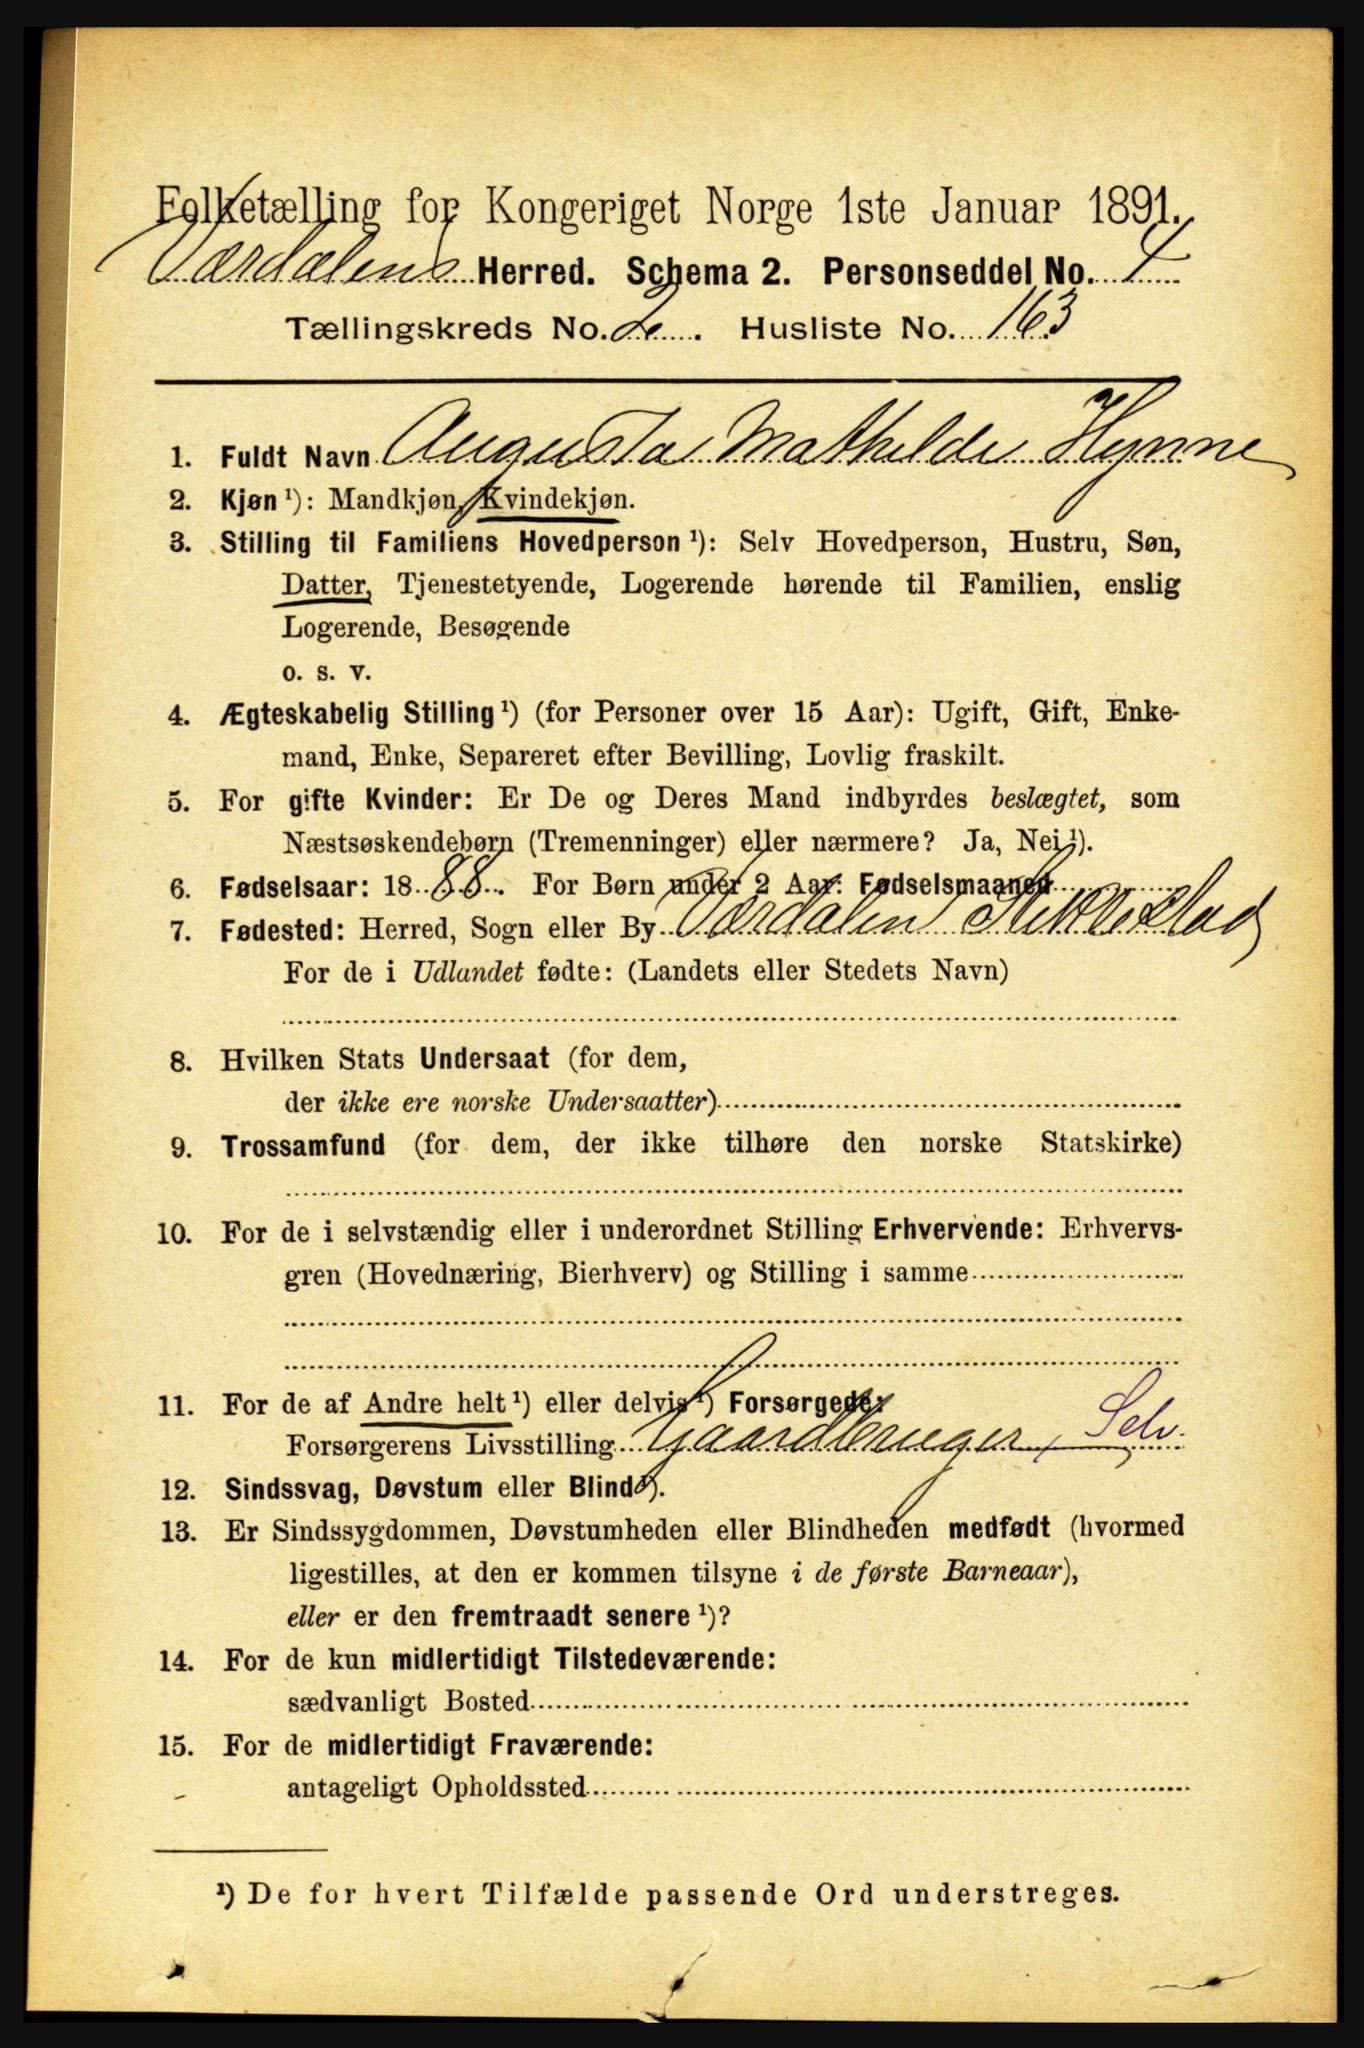 Folketælling for Kongeriget Norge 1ste Januar 1891.
Værdalens Herred. Schema 2. Personseddel No. 4
Tællingskreds No. 2. Husliste No. 163
1. Fuldt Navn Augusta Mathilde Hynne
2. Kjøn ¹): Mandkjøn, Kvindekjøn.
3. Stilling til Familiens Hovedperson ¹): Selv Hovedperson, Hustru, Søn,
Datter, Tjenestetyende, Logerende hørende til Familien, enslig
Logerende, Besøgende
o. s. v.
4. Ægteskabelig Stilling ¹) (for Personer over 15 Aar): Ugift, Gift, Enke-
mand, Enke, Separeret efter Bevilling, Lovlig fraskilt.
5. For gifte Kvinder: Er De og Deres Mand indbyrdes beslægtet, som
Næstsøskendebørn (Tremenninger) eller nærmere? Ja, Nei ¹).
6. Fødselsaar: 1888. For Børn under 2 Aar: Fødselsmaaned
7. Fødested: Herred, Sogn eller By Værdalen Stiklestad
For de i Udlandet fødte: (Landets eller Stedets Navn)
8. Hvilken Stats Undersaat (for dem,
der ikke ere norske Undersaatter)
9. Trossamfund (for dem, der ikke tilhøre den norske Statskirke)
10. For de i selvstændig eller i underordnet Stilling Erhvervende: Erhvervs-
gren (Hovednæring, Bierhverv) og Stilling i samme
11. For de af Andre helt ¹) eller delvis ¹) Forsørgede:
Forsørgerens Livsstilling Gaardbruger, Selv.
12. Sindssvag, Døvstum eller Blind ¹).
13. Er Sindssygdommen, Døvstumheden eller Blindheden medfødt (hvormed
ligestilles, at den er kommen tilsyne i de første Barneaar),
eller er den fremtraadt senere ¹)?
14. For de kun midlertidigt Tilstedeværende:
sædvanligt Bosted
15. For de midlertidigt Fraværende:
antageligt Opholdssted
¹) De for hvert Tilfælde passende Ord understreges.